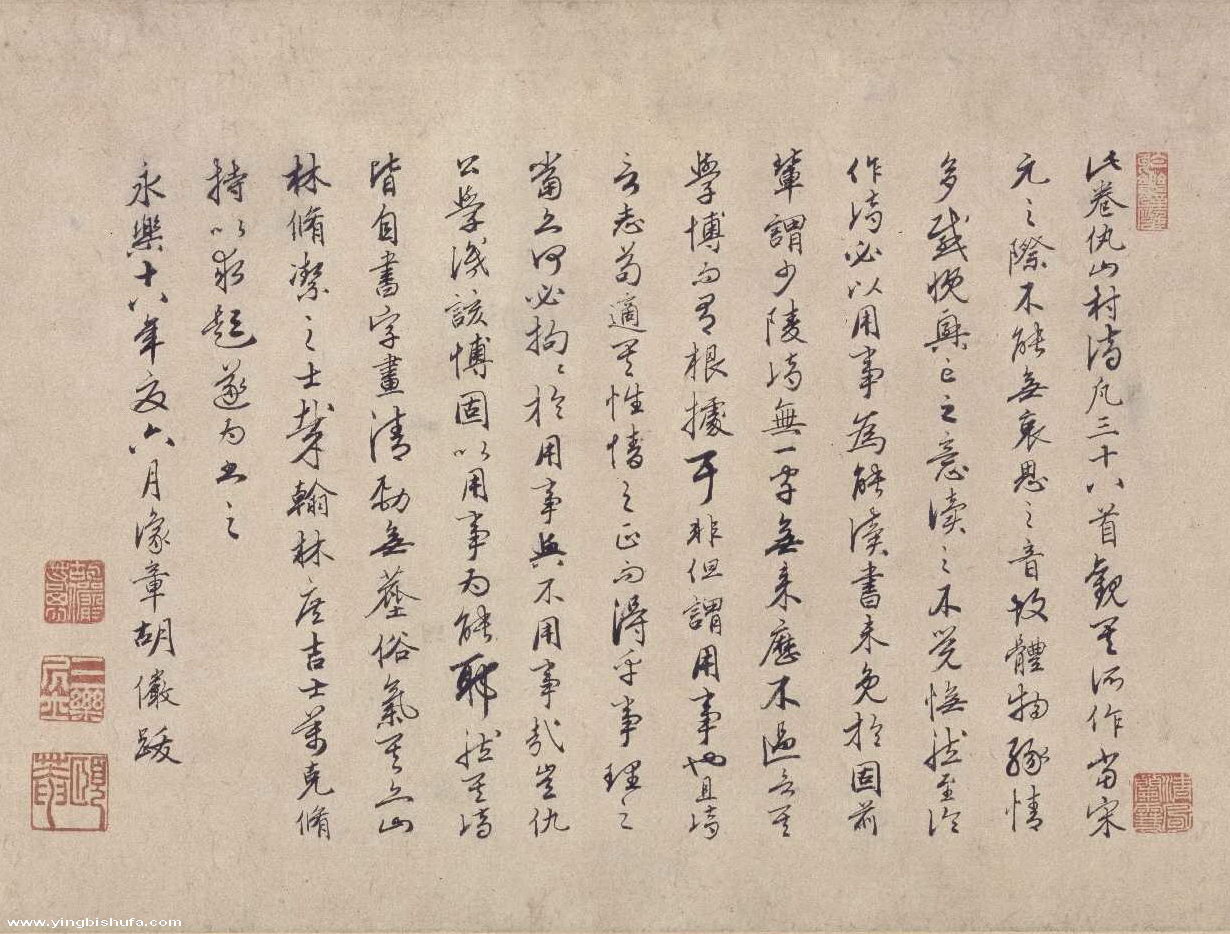 此卷仇山村詩凡三十八首觀其所作當宋
元之際不能無哀思之音故體物緣情
多感慨興亡之意讀之不覺憮然至論
作詩必以用事為能讀書未免於固前
輩謂少陵詩無一字無來歷不過言其
學博而有根據耳非但謂用事也且詩
言志苟適其性情之正而得乎事理之
當亦何必拘拘於用事與不用事哉豈仇
公學識該博固以用事為能耶然其詩
皆自書字畫清勁無塵俗氣其亦山
林脩潔之士哉翰林庶吉士蔣克脩
持以求題遂為書之
永樂十八年夏六月豫章胡儼跋
www.yingbishufa.com